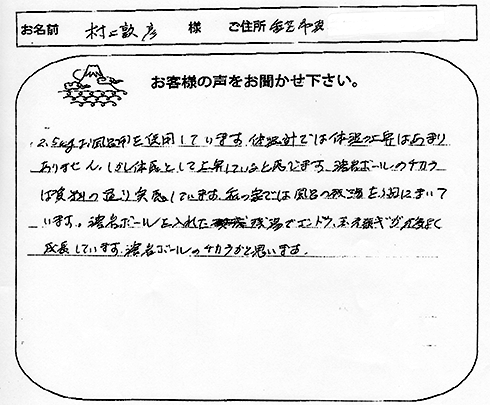 お名前 村上敦彦 様 ご住所
お客様の声をお聞かせ下さい。
2.5kgお風呂用を使用しています。体温計では体温の上昇はあまり
ありません。しかし体感として上昇していると感じます。湯名ボールのチカラ
は資料の通り実感しています。私の家では風呂の残湯を畑にまいて
います。湯名ボールを入れた残湯でエンドウ、玉ネギが
成長しています。湯名ボールのチカラかと思います。